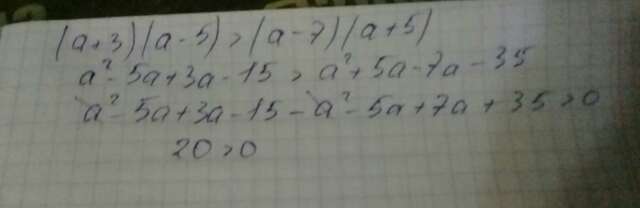 (a+3)(a-5)>(a-7)(a+5)
a²-5a+3a-15>a²+5a-7a-35
a²-5a+3a-15-a²-5a+7a+35>0
20>0